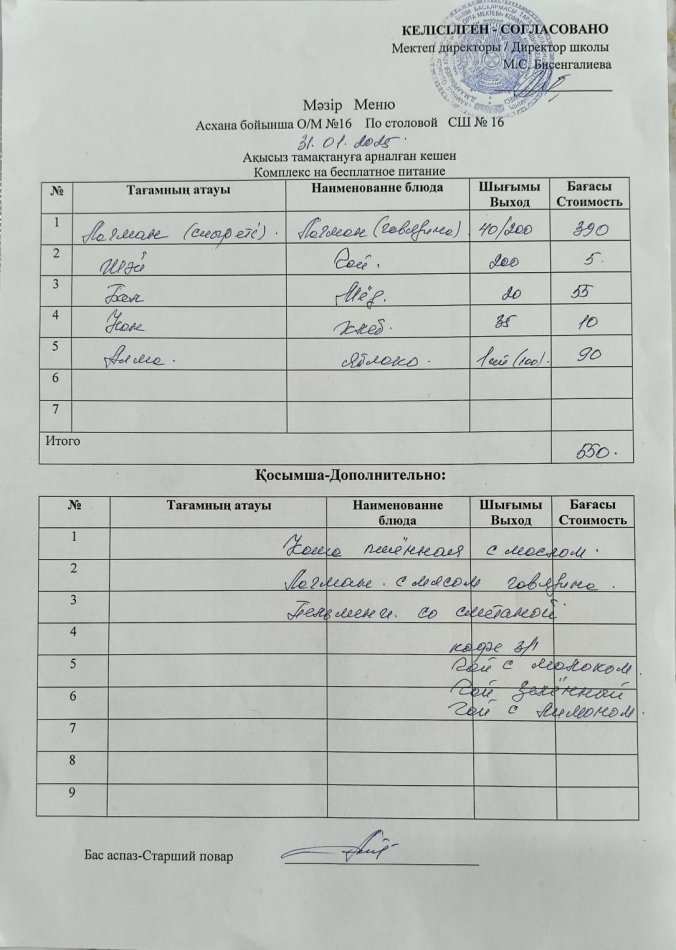 КЕЛІСІЛГЕН - СОГЛАСОВАНО
Мектеп директоры / Директор школы
М.С. Бисенгалиева
Мәзір Меню
Асхана бойынша О/М №16 По столовой СШ № 16
31.01.2025.
Ақысыз тамақтануға арналған кешен
Комплекс на бесплатное питание
№ Тағамның атауы Наименование блюда Шығымы Выход Бағасы Стоимость
1 Лагман (сиыр еті). Лагман (говядина). 40/200 390
2 Шәй Чай. 200 5.
3 Бал Мёд. 20 55
4 Нан хлеб. 35 10
5 Алма. Яблоко. 1 шт (100). 90
6
7
Итого 550.
Қосымша-Дополнительно:
№ Тағамның атауы Наименование блюда Шығымы Выход Бағасы Стоимость
1 Каша пшённая с маслом.
2 Лагман с мясом говядина.
3 Пельмени со сметаной
4 кофе 3/1
5 Чай с молоком.
6 Чай зелённый
Чай с лимоном.
7
8
9
Бас аспаз-Старший повар